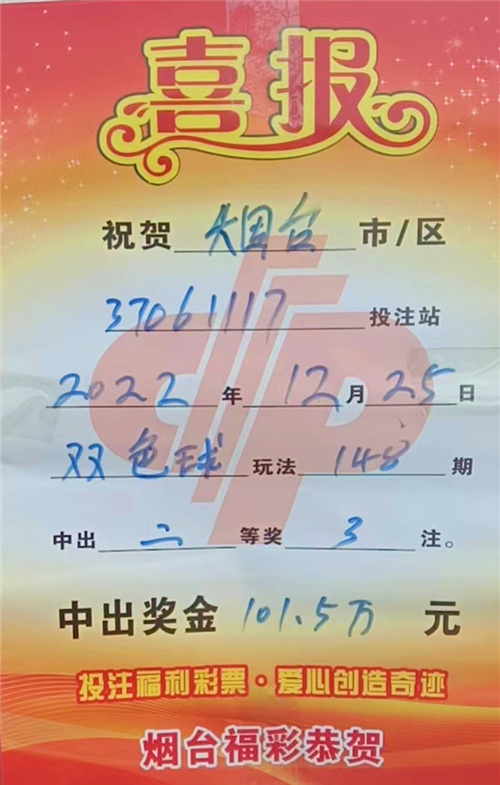 喜报
祝贺 烟台 市/区
37061117 投注站
2022 年 12 月 25 日
双色球 玩法 148 期
中出 二 等奖 3 注。
中出奖金 101.5万 元
投注福利彩票·爱心创造奇迹
烟台福彩恭贺